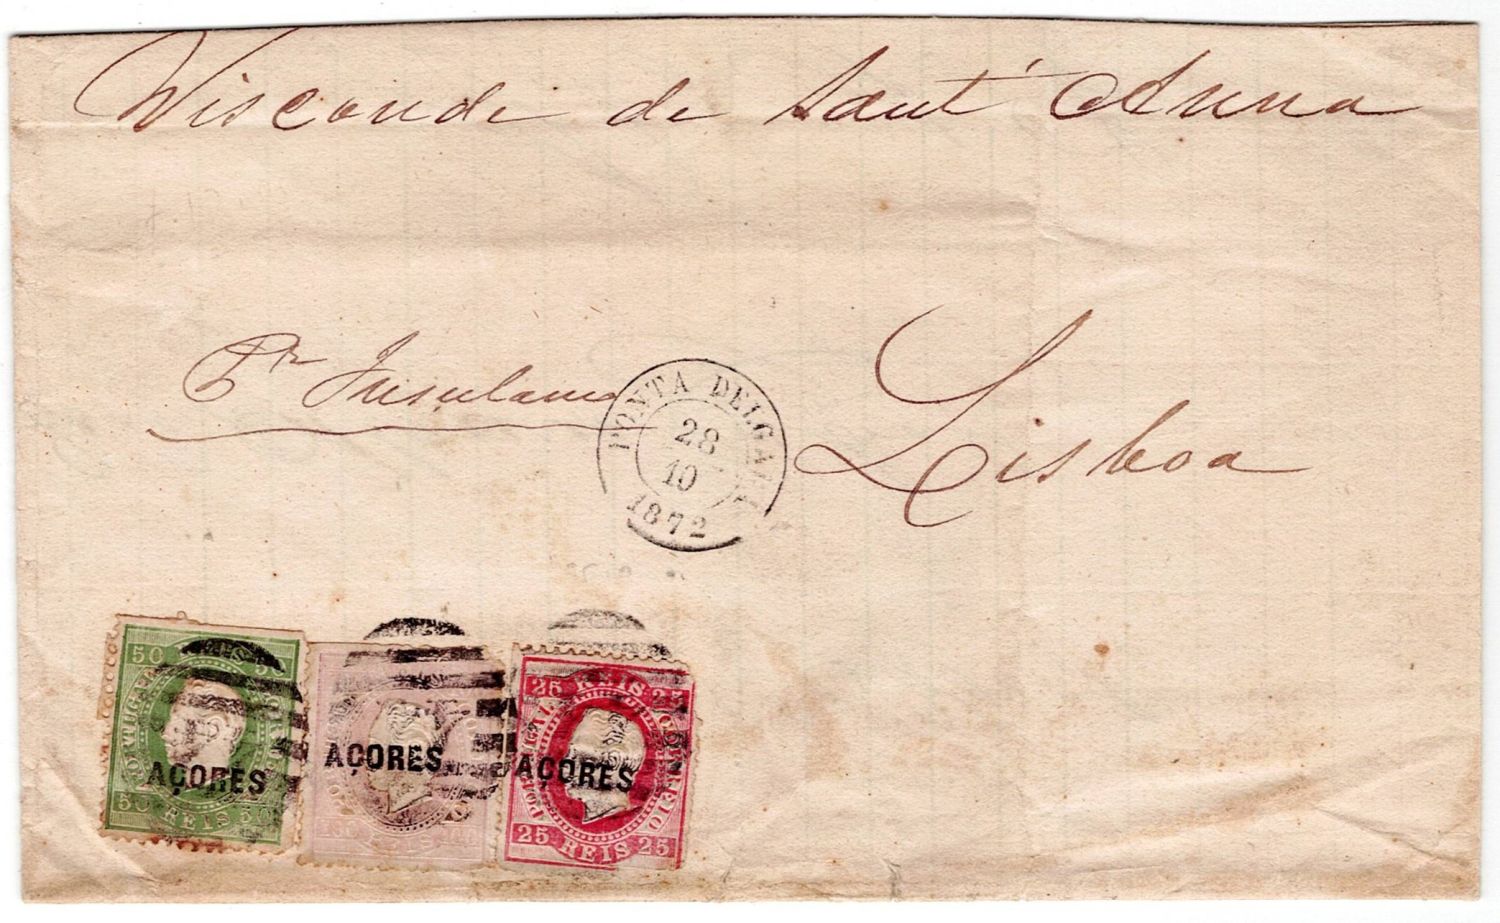 Visconde de Sant' Anna
Pr Insulano
Lisboa
PONTA DELGADA
28
10
1872
50 50
PORTUGAL CORREIO
AÇORES
50 REIS 50
AÇORES
REIS
25 REIS 25
PORTUGAL CORREIO
AÇORES
25 REIS 25